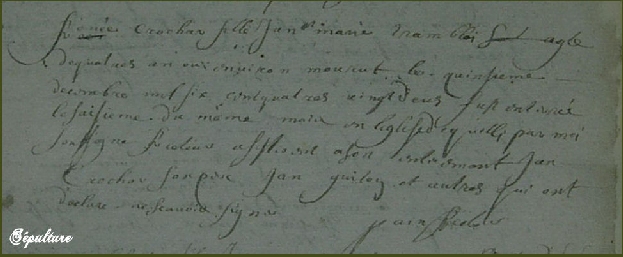 Crochar fille Jan et marie agée
de quatres an ou environ mourut le quinsieme
decembre mil six cent quatres vingt deus fust enterré
le saisieme du même mois en leglise par moi
soussigné assistant a son enterement Jan
Crochar son pere Jan et autres qui ont
declare ne scauoir signer
Sépulture